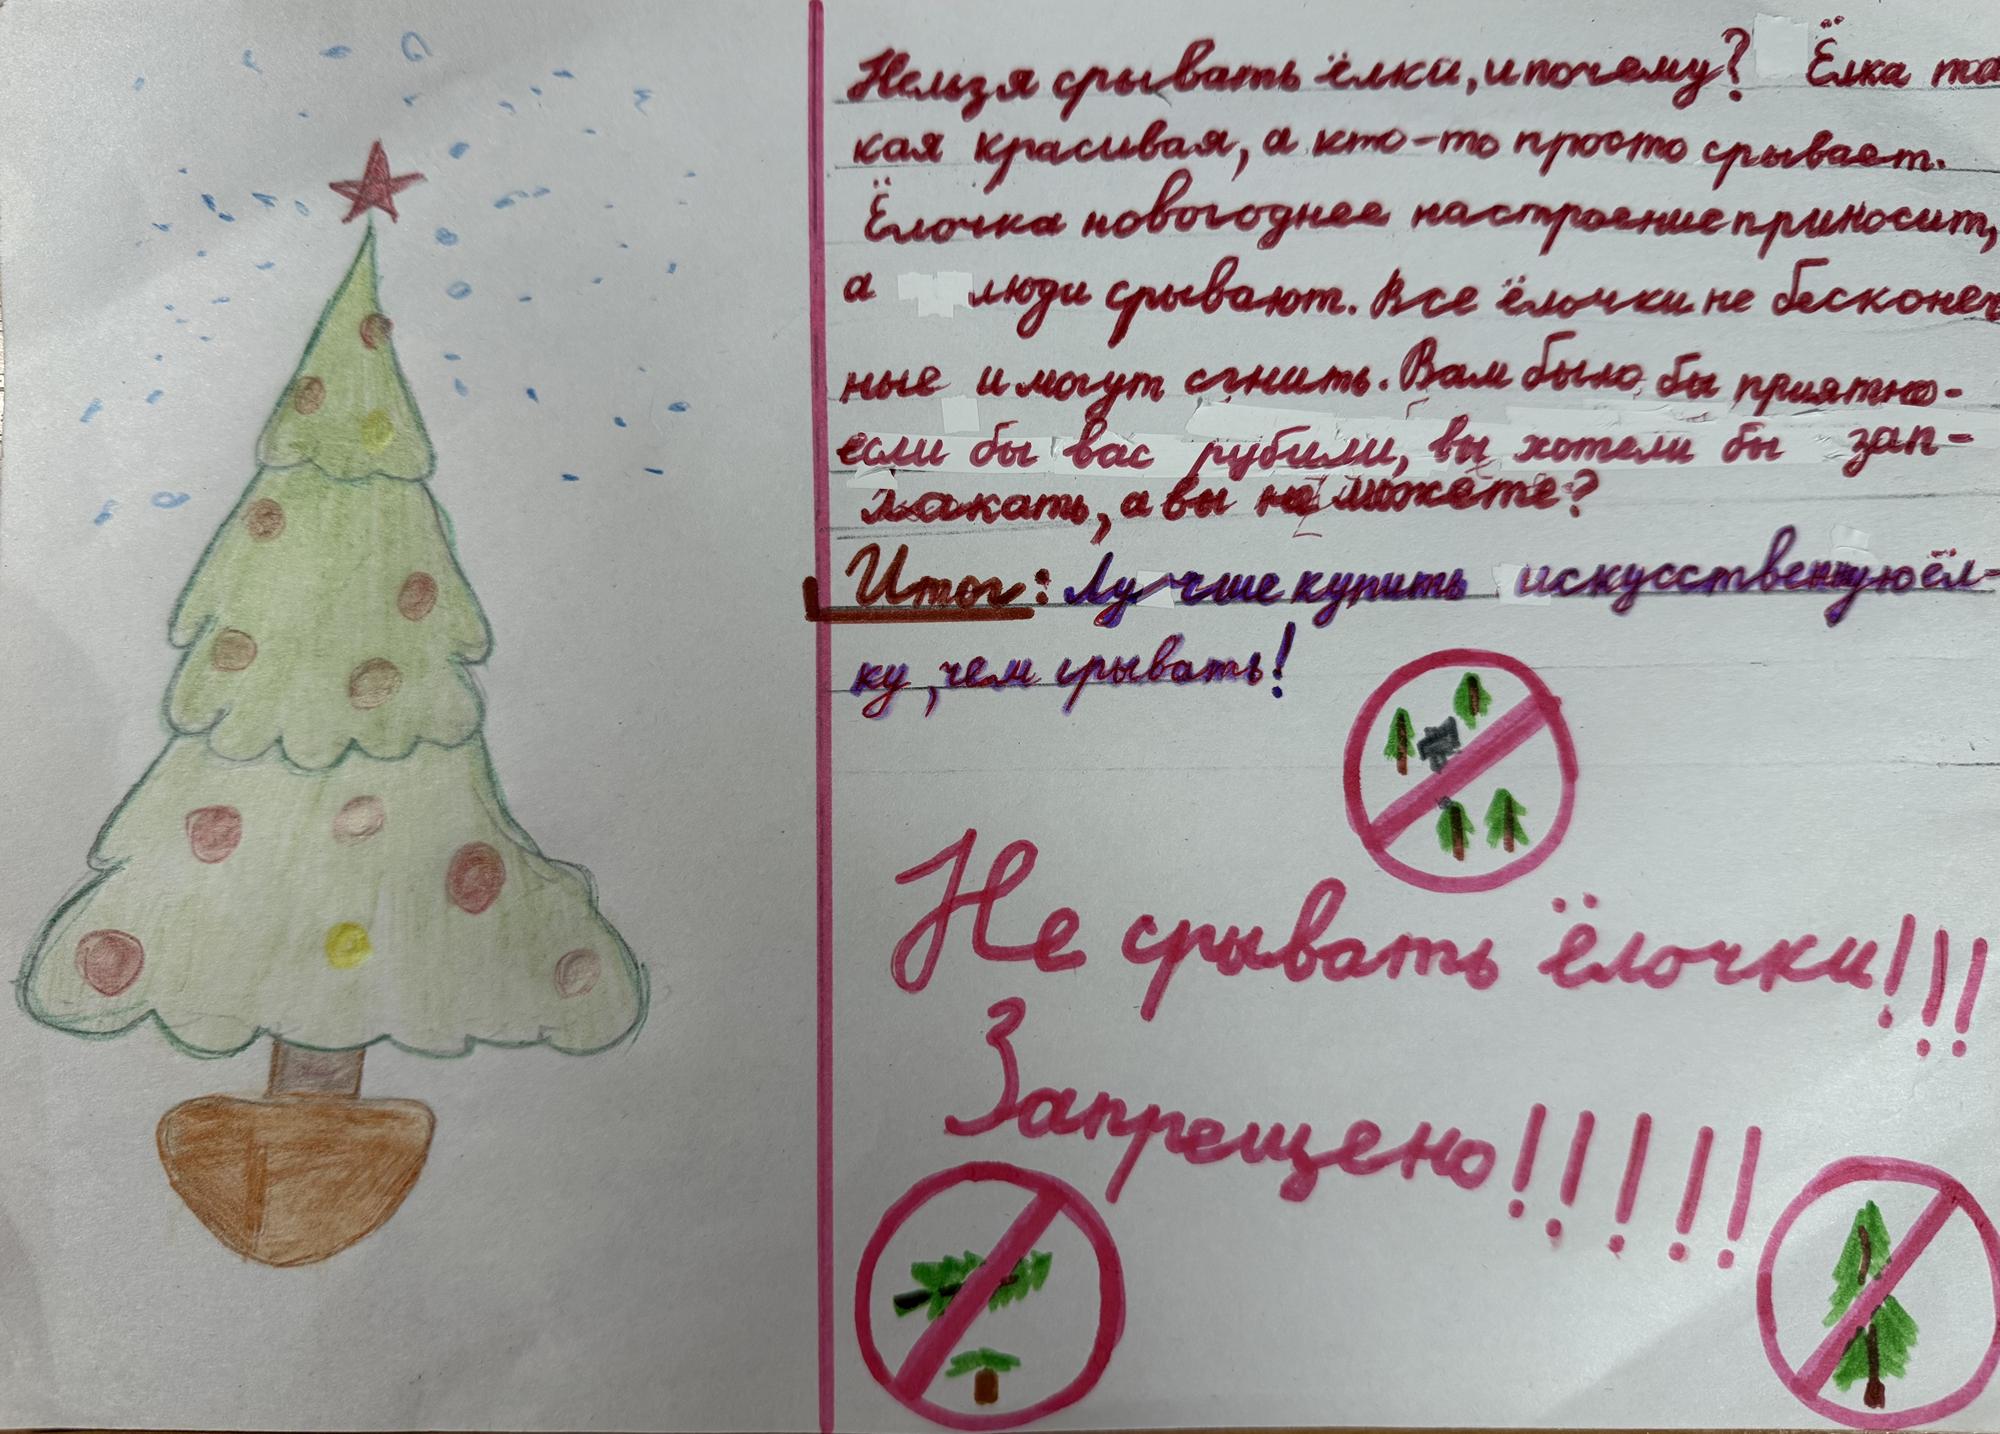 Нельзя срывать ёлки, и почему? Ёлка та
кая красивая, а кто-то просто срывает.
Ёлочка новогоднее настроение приносит,
а люди срывают. Все ёлочки не бесконеч
ные и могут сгнить. Вам было бы приятно-
если бы вас рубили, вы хотели бы зап-
лакать, а вы не можете?
Итог: Лучше купить искусственную ёл-
ку, чем срывать!
Не срывать ёлочки!!!
Запрещено!!!!!